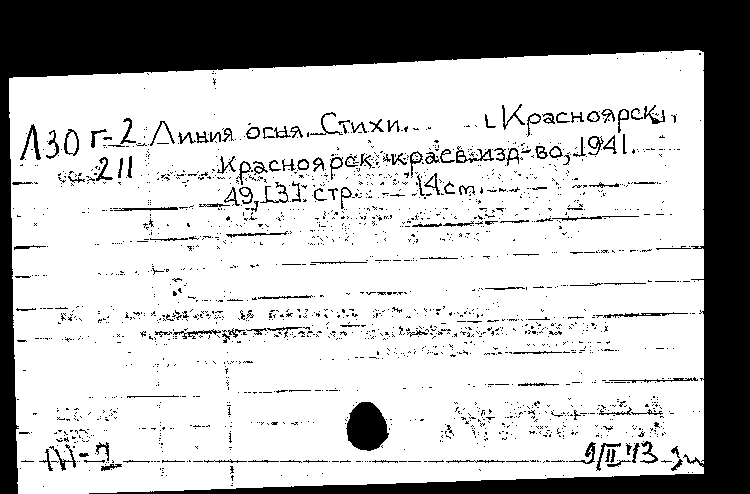 Л30 г-2 Линия огня. Стихи. [Красноярск],
211 Красноярск. краев. изд-во, 1941.
49, [3] стр. 14 см.
III-2
9/II 43